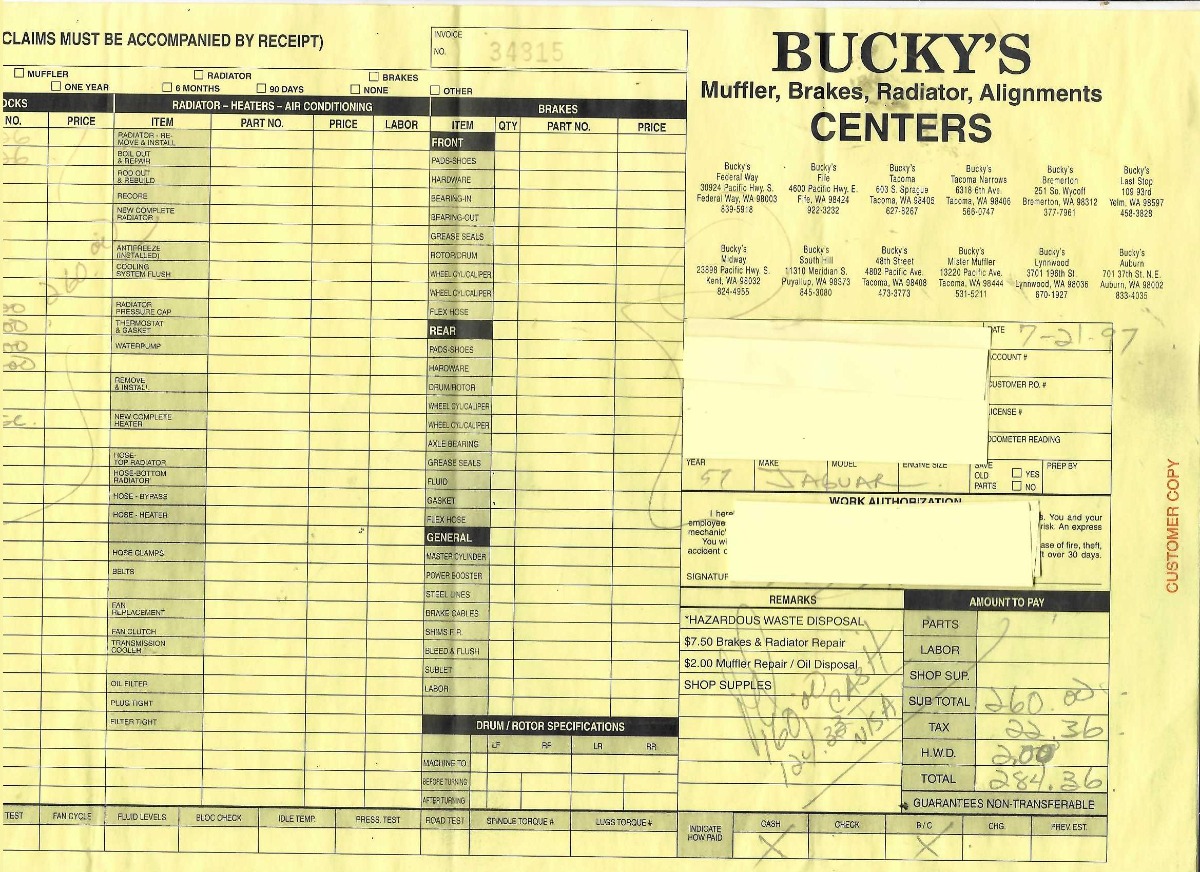 CLAIMS MUST BE ACCOMPANIED BY RECEIPT)
INVOICE
NO. 34315
MUFFLER RADIATOR BRAKES
ONE YEAR 6 MONTHS 90 DAYS NONE OTHER
OCKS RADIATOR – HEATERS – AIR CONDITIONING BRAKES
NO. PRICE ITEM PART NO. PRICE LABOR ITEM QTY PART NO. PRICE
RADIATOR - RE-
MOVE & INSTALL
BOIL OUT
& REPAIR
ROD OUT
& REBUILD
RECORE
NEW COMPLETE
RADIATOR
ANTIFREEZE
(INSTALLED)
COOLING
SYSTEM FLUSH
260.00
RADIATOR
PRESSURE CAP
THERMOSTAT
& GASKET
WATERPUMP
REMOVE
& INSTALL
NEW COMPLETE
HEATER
HOSE-
TOP RADIATOR
HOSE-BOTTOM
RADIATOR
HOSE - BYPASS
HOSE - HEATER
HOSE CLAMPS
BELTS
FAN
REPLACEMENT
FAN CLUTCH
TRANSMISSION
COOLER
OIL FILTER
PLUG TIGHT
FILTER TIGHT
FRONT
PADS-SHOES
HARDWARE
BEARING-IN
BEARING-OUT
GREASE SEALS
ROTOR/DRUM
WHEEL CYL/CALIPER
WHEEL CYL/CALIPER
FLEX HOSE
REAR
PADS-SHOES
HARDWARE
DRUM/ROTOR
WHEEL CYL/CALIPER
WHEEL CYL/CALIPER
AXLE BEARING
GREASE SEALS
FLUID
GASKET
FLEX HOSE
GENERAL
MASTER CYLINDER
POWER BOOSTER
STEEL LINES
BRAKE CABLES
SHIMS F R
BLEED & FLUSH
SUBLET
LABOR
DRUM / ROTOR SPECIFICATIONS
LF RF LR RR
MACHINE TO
BEFORE TURNING
AFTER TURNING
TEST FAN CYCLE FLUID LEVELS BLOC CHECK IDLE TEMP. PRESS. TEST ROAD TEST SPINDLE TORQUE # LUGS TORQUE #
BUCKY'S
Muffler, Brakes, Radiator, Alignments
CENTERS
Bucky's
Federal Way
30924 Pacific Hwy. S.
Federal Way, WA 98003
839-5918
Bucky's
Fife
4600 Pacific Hwy. E.
Fife, WA 98424
922-3232
Bucky's
Tacoma
603 S. Sprague
Tacoma, WA 98405
627-6267
Bucky's
Tacoma Narrows
6318 6th Ave.
Tacoma, WA 98406
566-0747
Bucky's
Bremerton
251 So. Wycoff
Bremerton, WA 98312
377-7961
Bucky's
Last Stop
109 93rd
Yelm, WA 98597
458-3828
Bucky's
Midway
23898 Pacific Hwy. S.
Kent, WA 98032
824-4955
Bucky's
South Hill
11310 Meridian S.
Puyallup, WA 98373
845-3080
Bucky's
48th Street
4802 Pacific Ave.
Tacoma, WA 98408
473-3773
Bucky's
Mister Muffler
13220 Pacific Ave.
Tacoma, WA 98444
531-5211
Bucky's
Lynnwood
3701 196th St.
Lynnwood, WA 98036
670-1927
Bucky's
Auburn
701 37th St. N.E.
Auburn, WA 98002
833-4035
DATE 7-21-97
ACCOUNT #
CUSTOMER P.O. #
LICENSE #
ODOMETER READING
YEAR MAKE MODEL ENGINE SIZE SAVE OLD PARTS YES NO PREP BY
57 JAGUAR
WORK AUTHORIZATION
I here
employee
mechanic'
You wi
accident o
s. You and your
risk. An express
ase of fire, theft,
t over 30 days.
SIGNATUR
REMARKS
*HAZARDOUS WASTE DISPOSAL
$7.50 Brakes & Radiator Repair
$2.00 Muffler Repair / Oil Disposal
SHOP SUPPLES
160.00 CASH
VISA
AMOUNT TO PAY
PARTS
LABOR
SHOP SUP.
SUB TOTAL 260.00
TAX 22.36
H.W.D. 2.00
TOTAL 284.36
GUARANTEES NON-TRANSFERABLE
INDICATE
HOW PAID
CASH CHECK B / C CHG. PREV. EST.
X X
CUSTOMER COPY